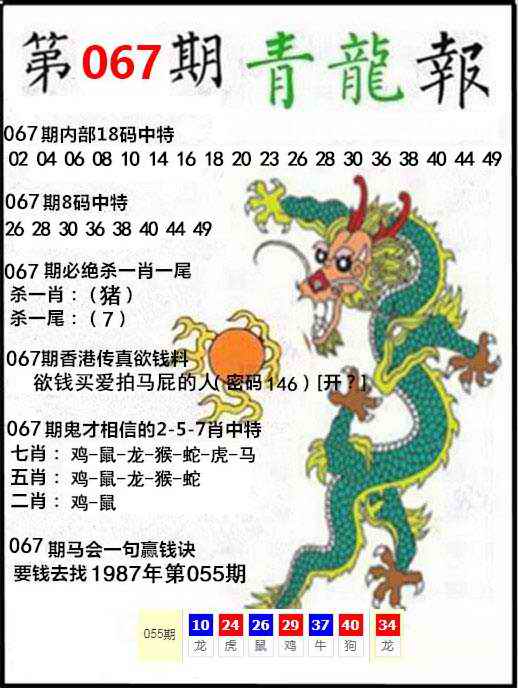 第067期 青龍報
067期内部18码中特
02 04 06 08 10 14 16 18 20 23 26 28 30 36 38 40 44 49
067期8码中特
26 28 30 36 38 40 44 49
067期必绝杀一肖一尾
杀一肖：（猪）
杀一尾：（7）
067期香港传真欲钱料
欲钱买爱拍马屁的人（密码146）[开？]
067期鬼才相信的2-5-7肖中特
七肖：鸡-鼠-龙-猴-蛇-虎-马
五肖：鸡-鼠-龙-猴-蛇
二肖：鸡-鼠
067期马会一句赢钱诀
要钱去找1987年第055期
055期 10 24 26 29 37 40 34
龙 虎 鼠 鸡 牛 狗 龙